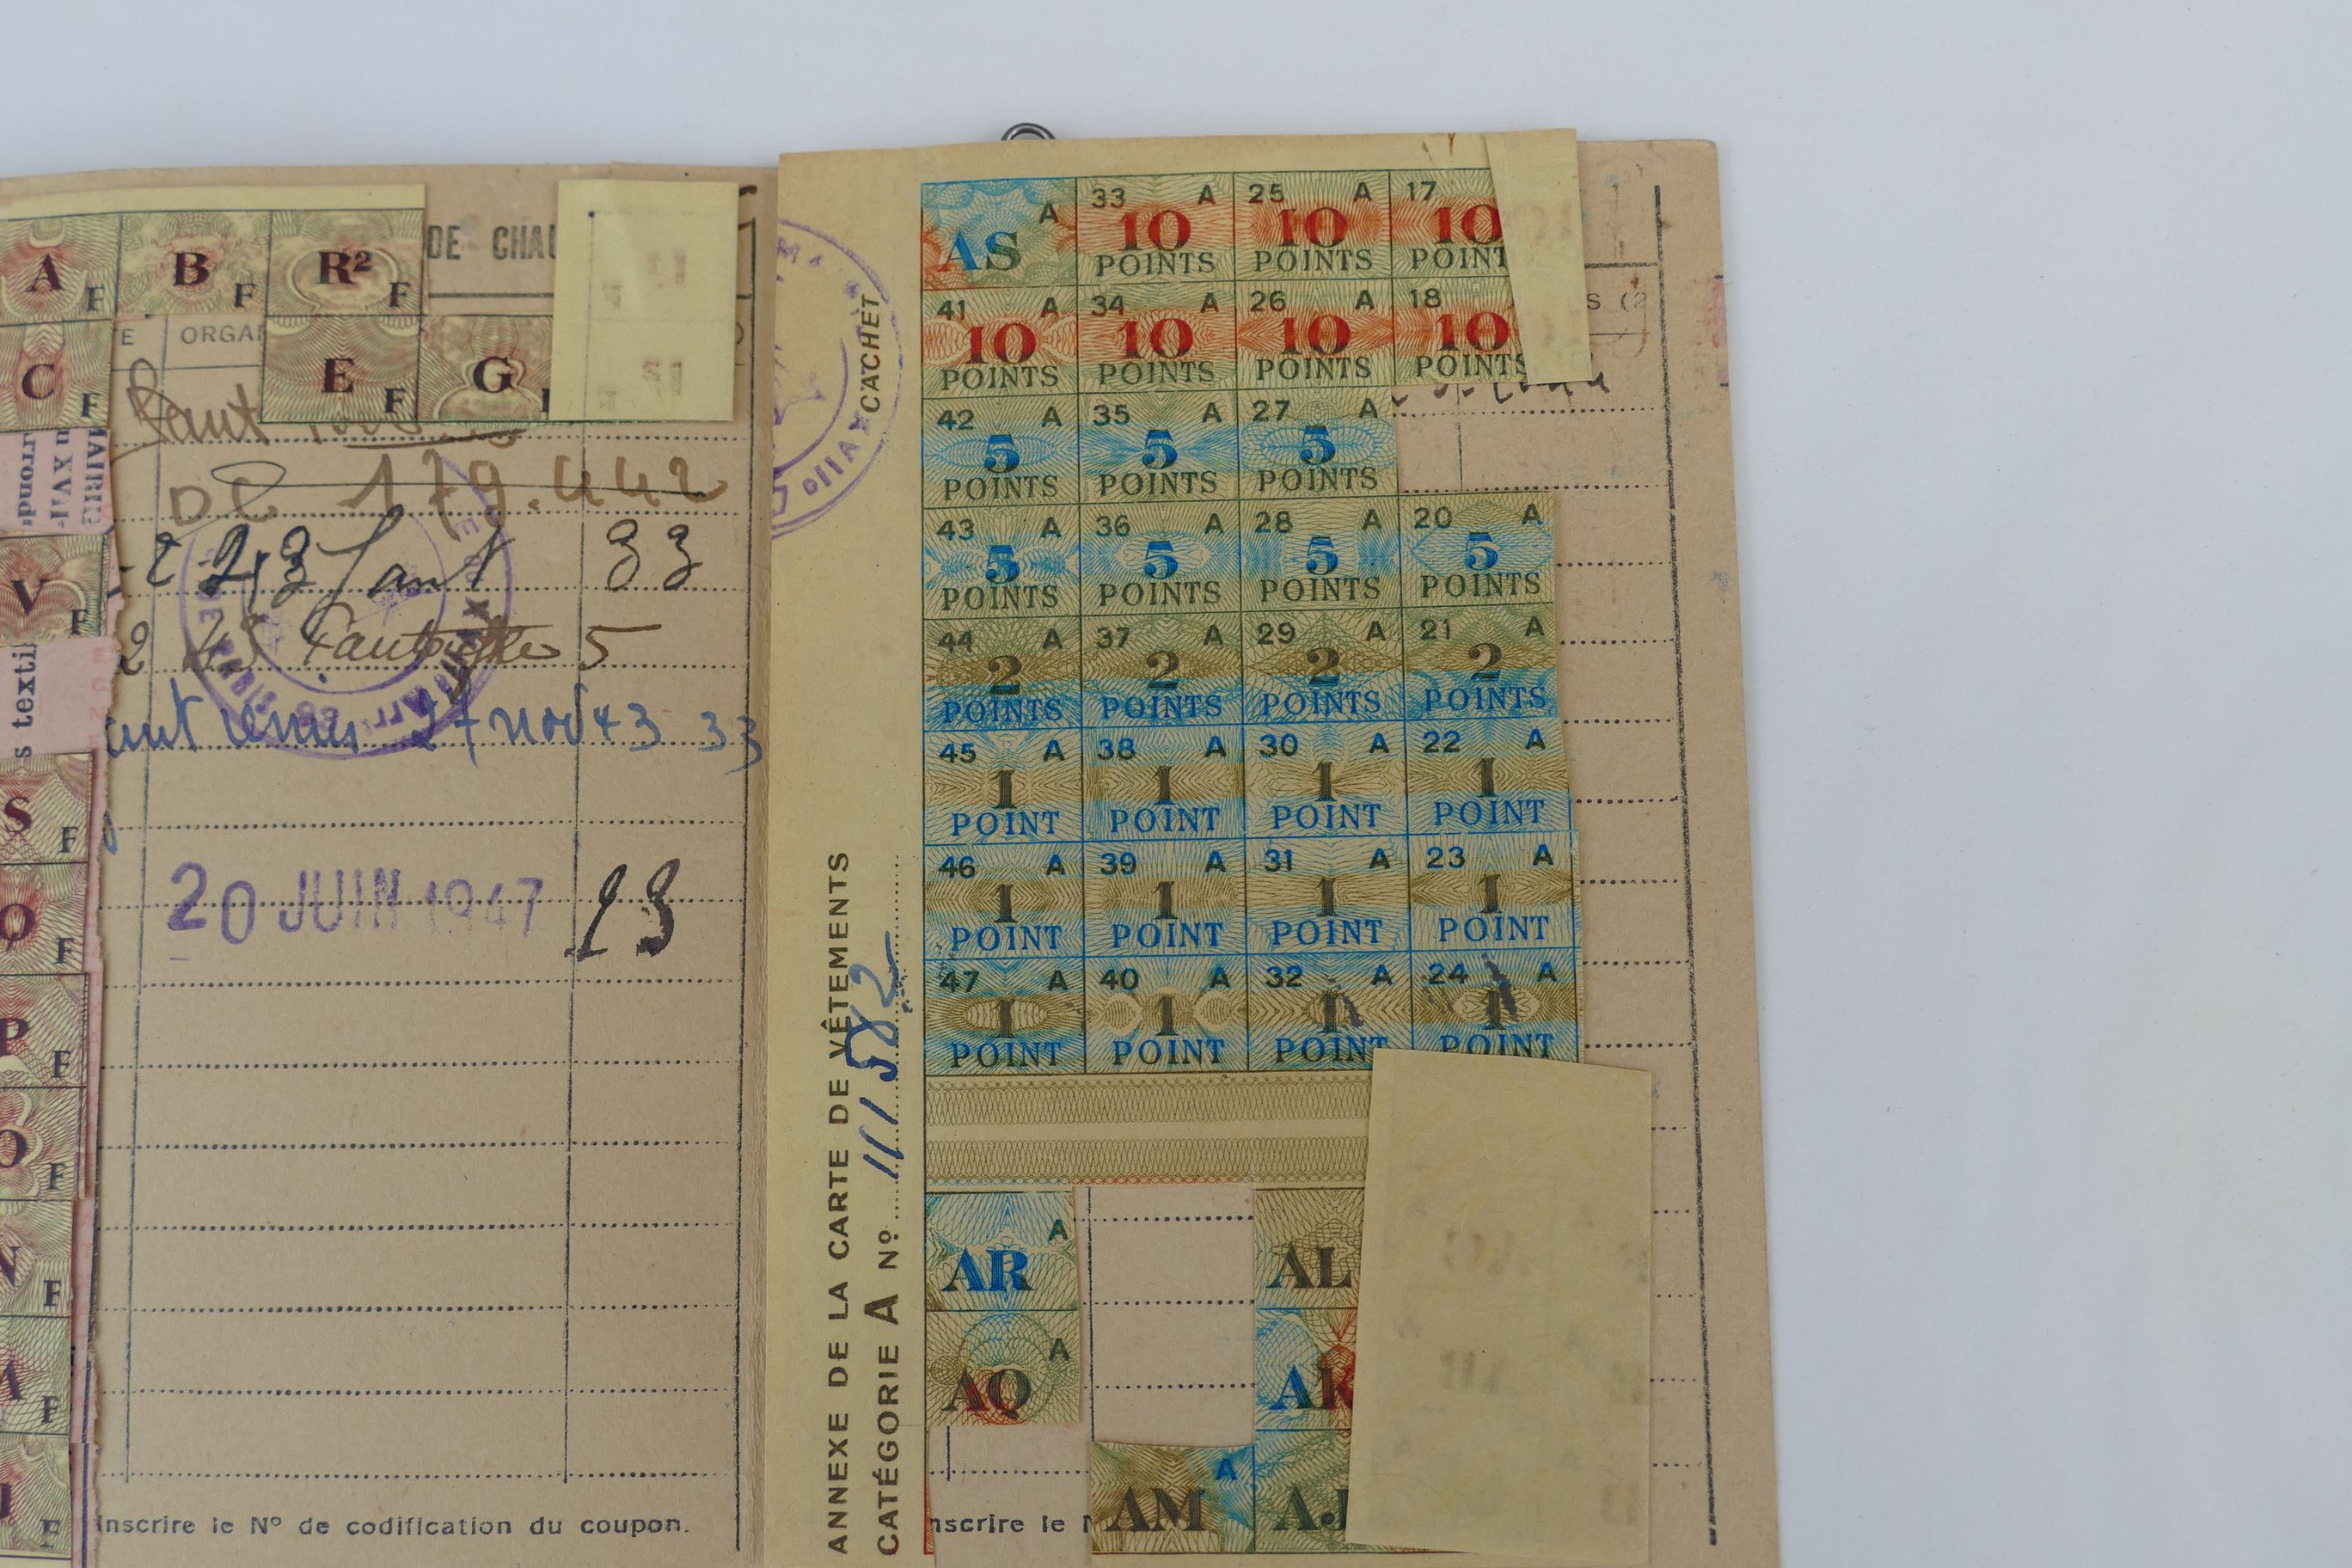 DE CHAU
A F B F R² F
C F E F G
E ORGA
Saut
DC 179.442
2 43 Sant 33
2 43 5
27 nov 43 33
20 JUIN 1947 23
MAIRIE
u XVII
rrond
V F
s texti
S F
O F
P F
F
N F
F
J F
nscrire le Nº de codification du coupon.
CACHET
ANNEXE DE LA CARTE DE VÊTEMENTS
CATÉGORIE A Nº 111582
AS A 33 A 10 POINTS 25 A 10 POINTS 17 10 POINT
41 A 10 POINTS 34 A 10 POINTS 26 A 10 POINTS 18 10 POINTS
42 A 5 POINTS 35 A 5 POINTS 27 A 5 POINTS
43 A 5 POINTS 36 A 5 POINTS 28 A 5 POINTS 20 A 5 POINTS
44 A 2 POINTS 37 A 2 POINTS 29 A 2 POINTS 21 A 2 POINTS
45 A 1 POINT 38 A 1 POINT 30 A 1 POINT 22 A 1 POINT
46 A 1 POINT 39 A 1 POINT 31 A 1 POINT 23 A 1 POINT
47 A 1 POINT 40 A 1 POINT 32 A 1 POINT 24 A 1 POINT
AR A AL
AQ A AK
AM A AJ
nscrire le N
S (2